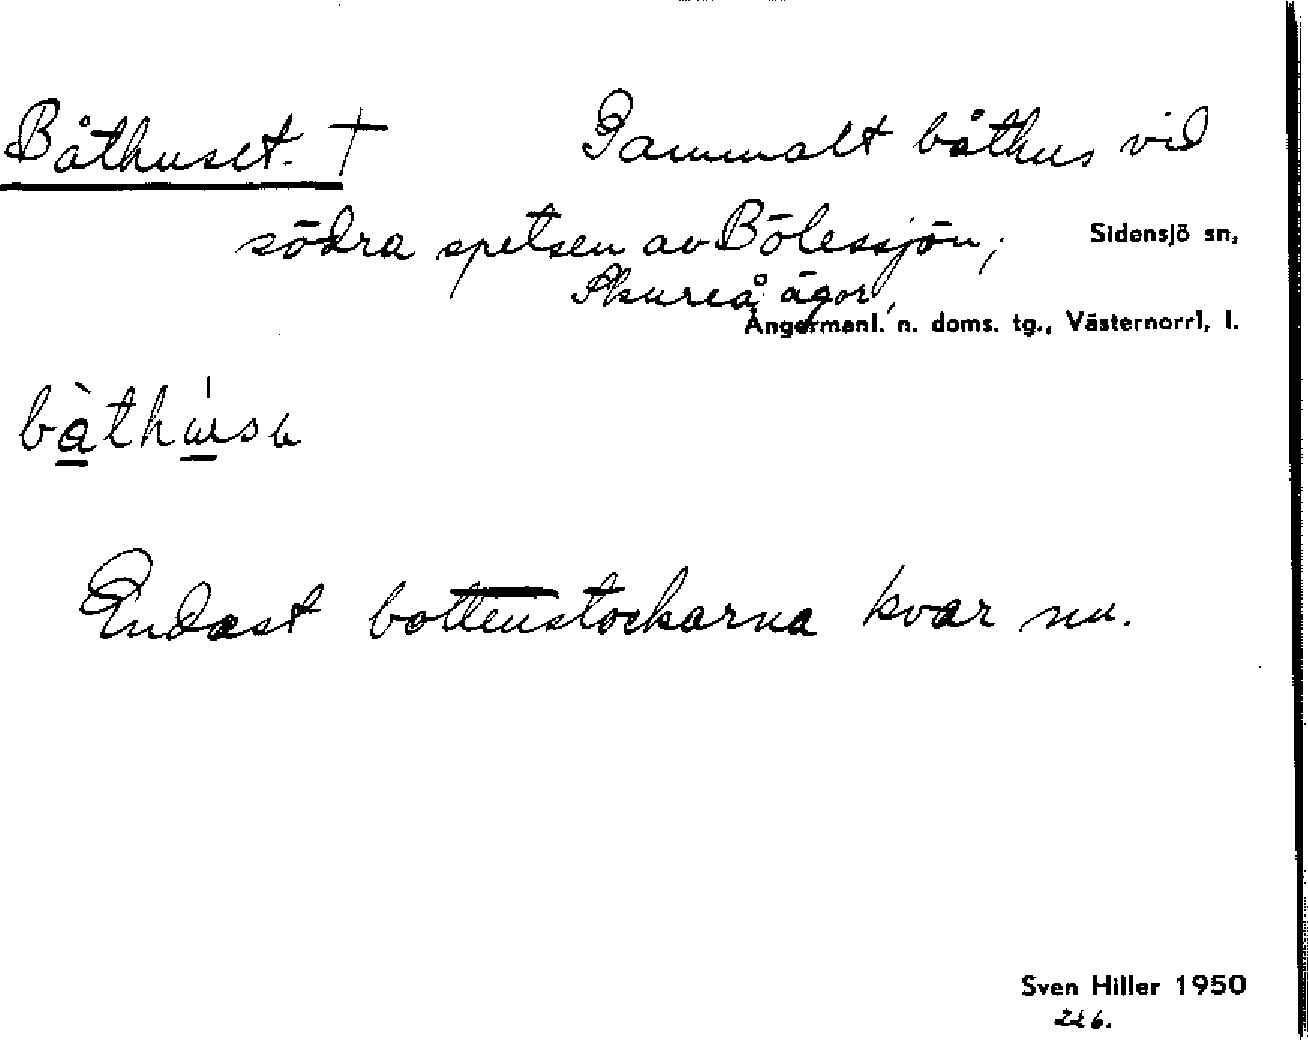 Båthuset. † Gammalt båthus vid
södra spetsen av Bölessjön,
Sidensjö sn,
Skureå ägor,
Ångermanl. n. doms. tg., Västernorrl. l.
Endast bottenstockarna kvar nu.
Sven Hiller 1950